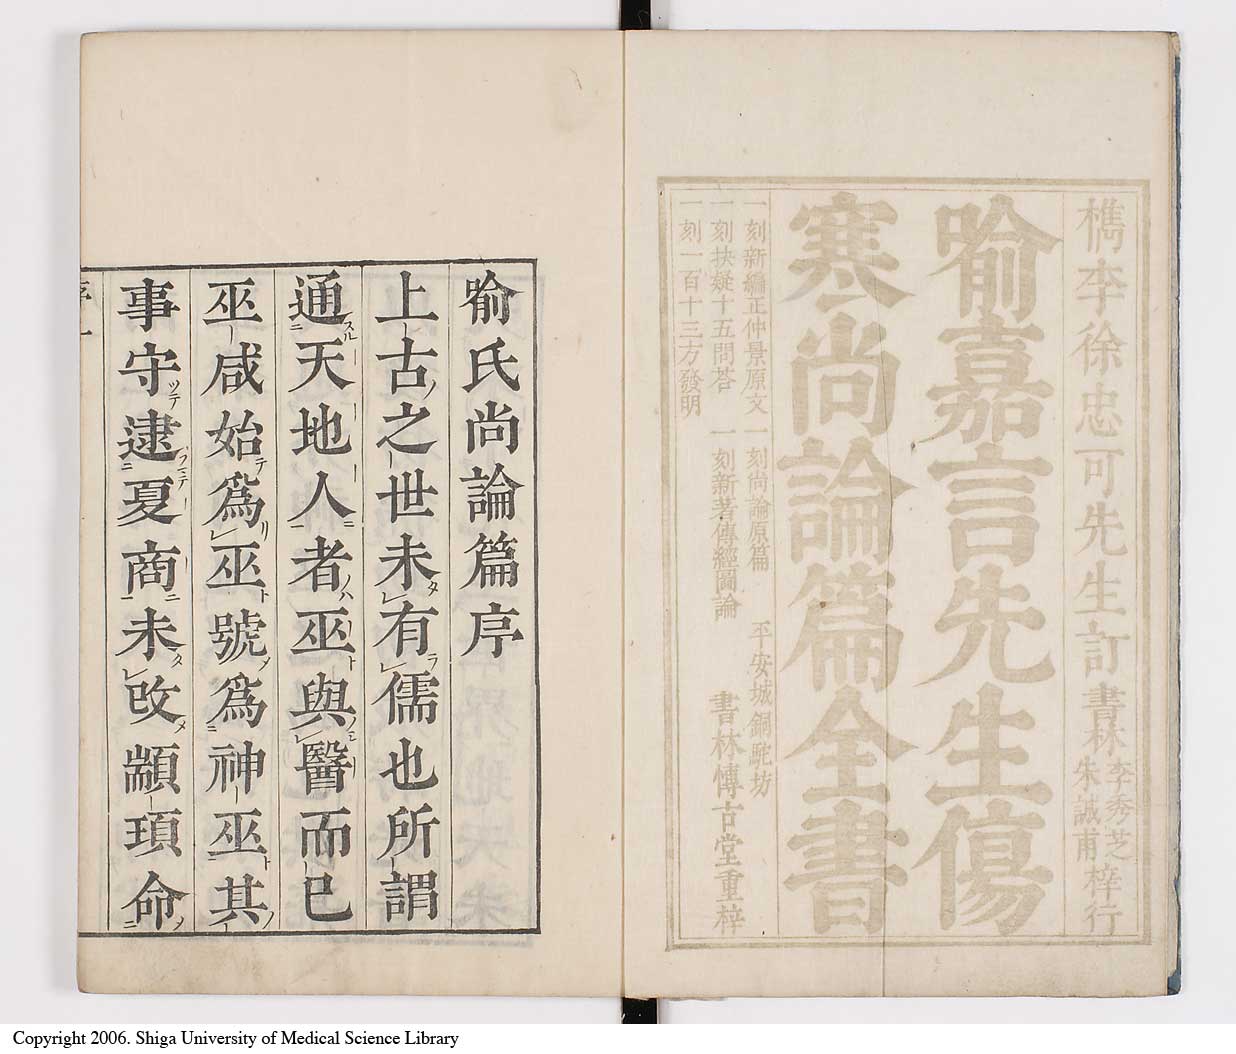 檇李徐忠可先生訂書林李秀芝朱誠甫梓行
喻嘉言先生傷
寒尚論篇全書
一刻新編正仲景原文一刻尚論原篇
平安城銅駝坊
一刻抉疑十五問荅一刻新著傳經圖論
書林博古堂重梓
一刻一百十三方發明
喻氏尚論篇序
上古之世未有儒也所謂
通天地人者巫與醫而已
巫咸始爲巫號爲神巫其
事守逮夏商未改顓頊命
序一
Copyright 2006. Shiga University of Medical Science Library